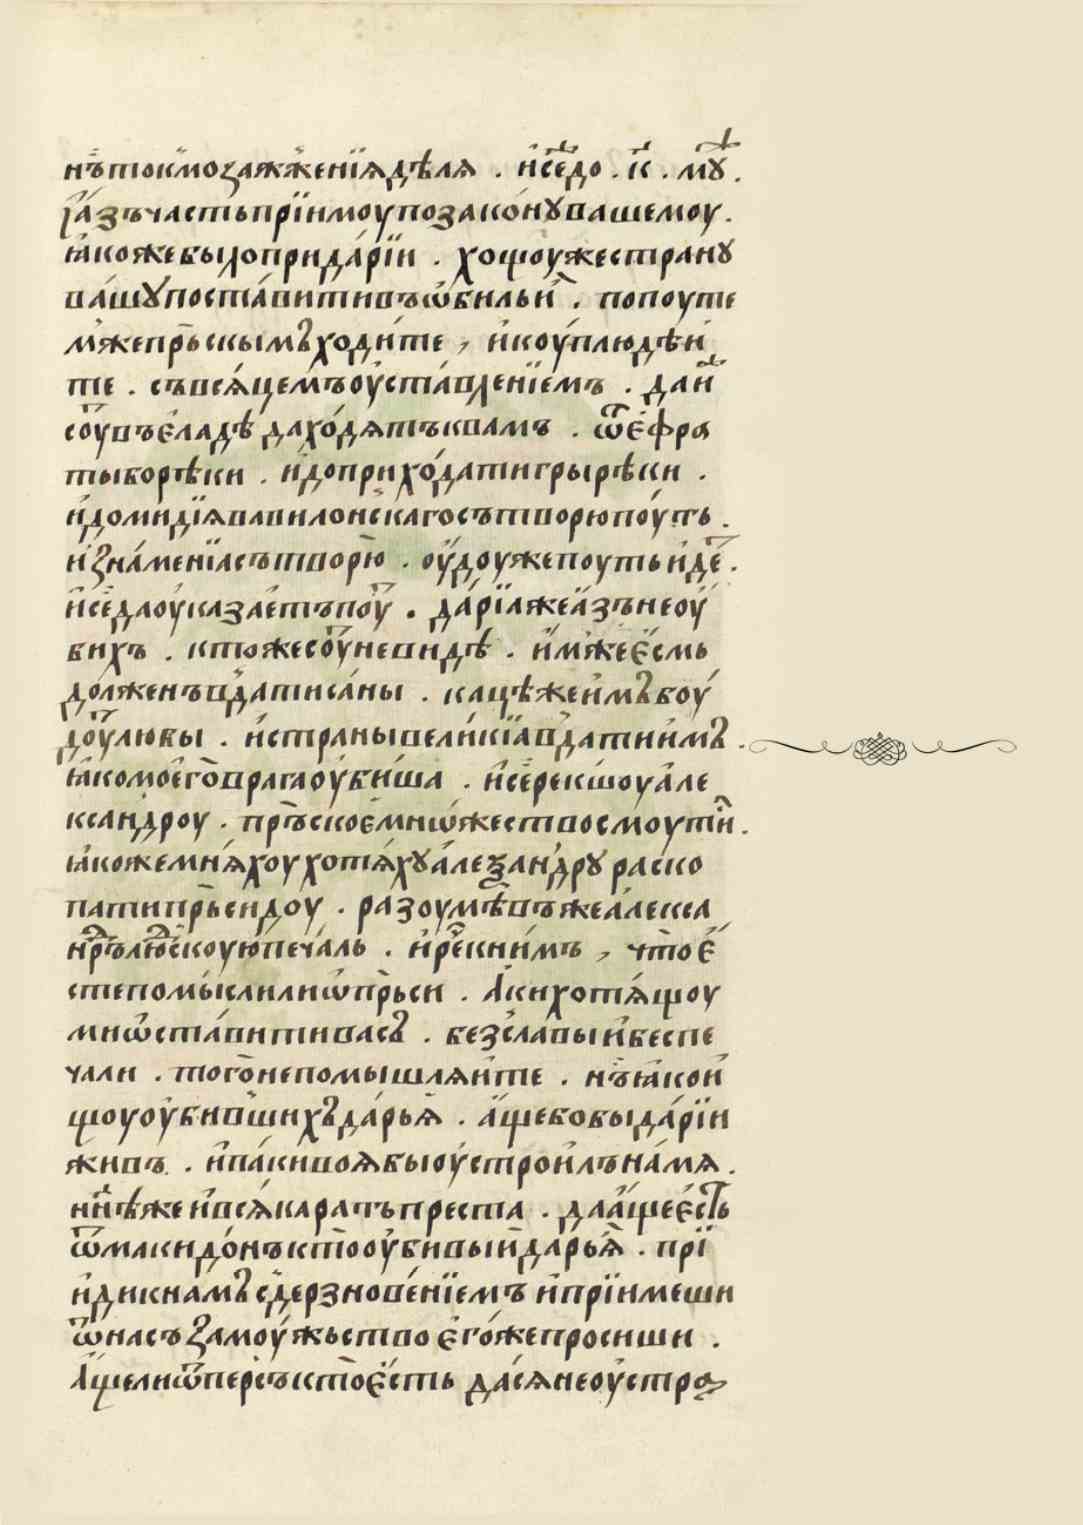 нъ̑токмозажже́нїѧдѣлѧ . и҆се̑до . к҃ . му̑ж .
ꙗ҆́зъчастьпрїимоупозако́нꙋвашемоу .
ꙗ҆́кожебылоприда́рїи . хощоуꙗ҆жестранꙋ
ва́шꙋпоста́витивъѡ҆бильи҆ . попоуте
мꙗ҆жепрⷭ҇ьскымъходи́те , и҆коу́плюдѣи҆
те . съвсѧ́цемъоу҆ста́вленїемъ . дани҆
соⷮувъе҆ладѣ дахо́дѧтъквамъ . ѿе҆фра
тыборѣки . и҆доприхо́датигрырѣки .
и҆домидїѧвавило́нскагосътворюпоу́ть .
и҆зна́менїасътворю̀ . оу҆доужепоутьи҆де́ .
и҆се̑даоуказа́етъпоⷮу . да́рїаꙗ҆жеа҆́зънеоу҆
бихъ . ктожесоⷮуневидѣ . и҆мжее҆смь
до́лженъвда́тиса́ны . кацѣжеи҆мъбоу́
доⷮулюбы . и҆страныве́ликїавда́тии҆мъ .
ꙗ҆́комоего̀врагаоу҆би́ша . и҆се̑рекшоуа҆ле
ксандроу . прⷭ҇ъскоемнѡ҆жествосмоути́ .
ꙗ҆́кожемнѧ́хоу хотѧ́хꙋа҆леѯандрꙋ раско
патипрⷭ҇ьсидоу . разоумѣ̑въжеа҆лекса
нⷣръ люⷣскоуюпеча́ль . и҆ре̑кни́мъ , что̀е҆
степомы́слилиѡ҆прⷭ҇ьси . а҆́кихотѧ́щоу
миѡ҆ста́витивасъ . безславыи҆беспе
чали . того̀непомышлѧи҆те . нъ̑ꙗ҆́кои҆
щоуоу҆бившихъда́рьѧ . а҆́щебобыда́рїи
живъ . и҆па́кивоѧбыоу҆строи́лъна́мѧ .
нн҃ѣжеи҆всѧ́каратьпреста . даа҆́щее҆сть
ѿмакидо́нъкто̀оу҆бивыи҆да́рьѧ . прї
и҆дикнамъсде́рзнове́нїемъи҆прїимеши
ѿнасъзамоу́жьство е҆го́жепросиши .
а҆́щелиѿпе́рсъкто̀е҆сть да́сѧнеоу҆стра